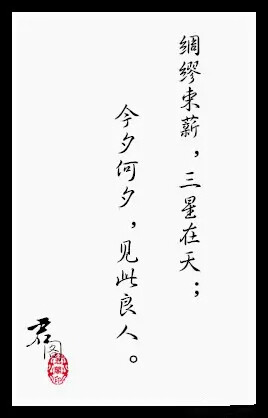 绸缪束薪，三星在天；
今夕何夕，见此良人。
君
阁